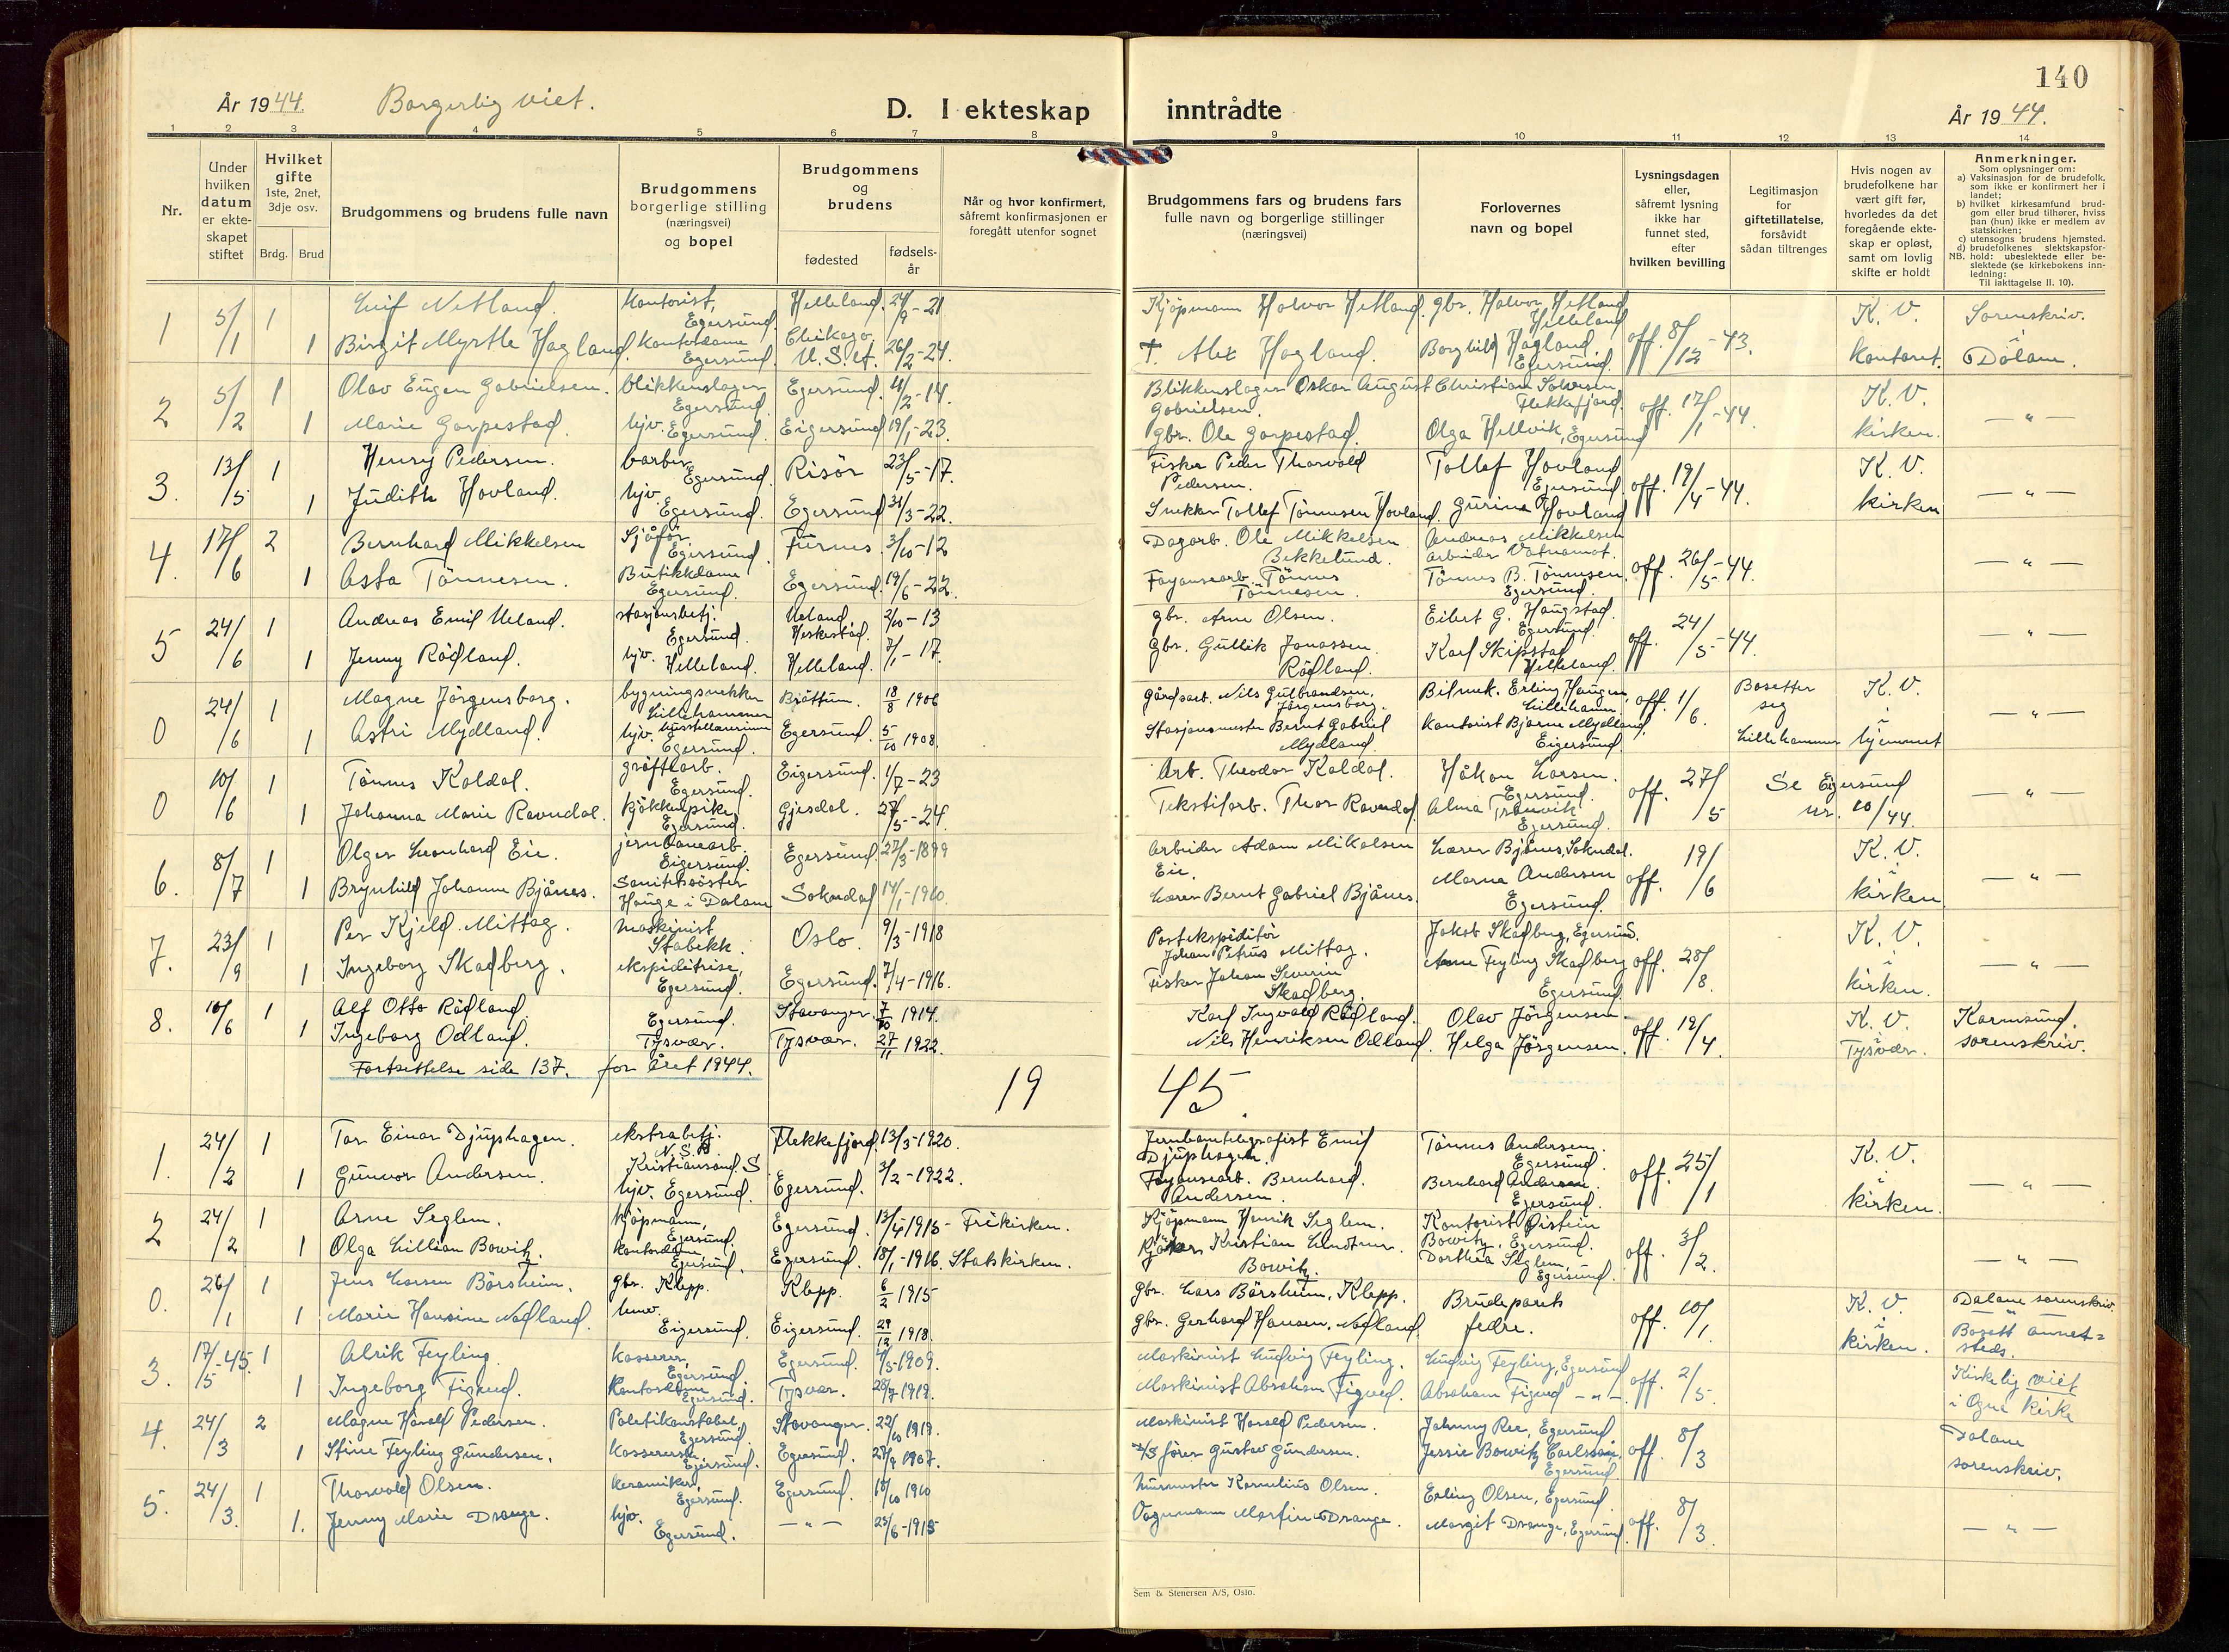 140
År 1944. Borgerlig viet. D. I ekteskap inntrådte År 1944.
1 2 3 4 5 6 7 8 9 10 11 12 13 14
Nr.
Under hvilken datum er ekteskapet stiftet
Hvilket gifte 1ste, 2net, 3dje osv.
Brdg. Brud
Brudgommens og brudens fulle navn
Brudgommens borgerlige stilling (næringsvei) og bopel
Brudgommens og brudens
fødested
fødselsår
Når og hvor konfirmert, såfremt konfirmasjonen er foregått utenfor sognet
Brudgommens fars og brudens fars fulle navn og borgerlige stillinger (næringsvei)
Forlovernes navn og bopel
Lysningsdagen eller, såfremt lysning ikke har funnet sted, efter hvilken bevilling
Legitimasjon for giftetillatelse, forsåvidt sådan tiltrenges
Hvis nogen av brudefolkene har vært gift før, hvorledes da det foregående ekteskap er opløst, samt om lovlig skifte er holdt
Anmerkninger.
Som oplysninger om:
a) Vaksinasjon for de brudefolk, som ikke er konfirmert her i landet;
b) hvilket kirkesamfund brudgom eller brud tilhører, hviss han (hun) ikke er medlem av statskirken;
c) utensogns brudens hjemsted.
d) brudefolkenes slektskapsforhold: ubeslektede eller beslektede (se kirkebokens innledning:
NB.
Til iakttagelse II. 10).
1 5/1 1 Leif Netland. Kontorist, Egersund. Helleland. 24/9-21 Kjøpmann Halvor Hetland. gbr. Halvor Hetland Helleland off. 8/12-43. K. V. i kontoret. Sorenskriv. i Dalane.
1 Birgit Myrtle Hagland. Kontordame Egersund. Chikago, U.S.A. 26/2-24. † Alex Hagland. Borghild Hagland, Egersund.
2 5/2 1 Olav Eugen Gabrielsen. blikkenslager Egersund. Egersund. 4/2-14. Blikkenslager Oskar August Gabrielsen. Christian Salvesen Flekkefjord. off. 17/1-44. K. V. kirken. — " —
1 Marie Garpestad. hjv. Egersund. Eigersund 19/1-23. gbr. Ole Garpestad. Olga Hellvik, Egersund
3. 13/5 1 Henry Pedersen. barber, Egersund. Risör 23/5-17. Fisker Peder Thorvald Pedersen. Tollef Hovland Egersund. off. 19/4-44. K. V. kirken — " —
1 Judith Hovland. hjv. Egersund. Egersund 31/3-22. Snekker Tollef Tönnesen Hovland. Gurine Hovland
4. 17/6 2 Bernhard Mikkelsen Sjåfør, Egersund. Furnes 3/10-12 Dagarb. Ole Mikkelsen Bekkelund. Andreas Mikkelsen arbeider Vatnamot. off. 26/5-44. — " —
1 Asta Tönnesen. Butikkdame Egersund. Egersund. 19/6-22. Fayansearb. Tönnes Tönnesen. Tönnes B. Tönnesen, Egersund.
5 24/6 1 Andreas Emil Ueland. stasjonsbetj. Egersund. Ueland, Heskestad. 2/10-13 gbr. Arne Olsen. Eilert G. Haugstad. Egersund. off. 24/5-44. — " —
1 Jenny Rödland. hjv. Helleland. Helleland. 7/1-17. gbr. Gullik Jonassen Rödland. Karl Skipstad Helleland.
0 24/6 1 Magne Jörgensborg. bygningssnekker Lillehammer Bjöttum. 18/8 1906 Gårdsarb. Nils Gulbrandsen Jörgensborg. Bilmek. Erling Haugen, Lilleham. off. 1/6. Bosetter seg Lillehammer K. V. i hjemmet — " —
1 Astri Mydland. hjv. Egersund. Egersund. 5/10 1908. Stasjonsmester Bernt Gabriel Mydland. Kontorist Bjarne Mydland, Eigersund.
0 10/6 1 Tönnes Koldal. gröftearb. Egersund. Eigersund. 1/7-23 Arb. Theodor Koldal. Håkon Larsen. Egersund. off. 27/5 Se Eigersund nr. 10/44. — " —
1 Johanna Marie Ravndal. Kjökkenpike Egersund. Gjesdal. 27/5-24. Tekstilarb. Thor Ravndal. Alma Tranvik Egersund.
6. 8/7 1 Olger Leonhard Eie. jernbanearb. Eigersund. Egersund. 27/3-1899 Arbeider Adam Mikalsen Eie. Lærer Bjånes, Sokndal. off. 19/6 K. V. i kirken. — " —
1 Brynhild Johanne Bjånes. Sanitetssöster Hauge i Dalane Sokndal 14/1-1910. Lærer Bernt Gabriel Bjånes. Marna Andersen Egersund.
7. 23/9 1 Per Kjeld Mittag. maskinist Stabekk. Oslo. 9/3-1918 Postekspeditör Johan Petrus Mittag. Jakob Skadberg, Egersund. off. 28/8. K. V. i kirken. — " —
1 Ingeborg Skadberg. ekspeditrise, Egersund. Egersund. 7/4-1916. Fisker Johan Severin Skadberg. Anne Feyling Skadberg Egersund.
8. 10/6 1 Alf Otto Rödland. Egersund. Stavanger. 7/10 1914. Karl Ingvald Rödland. Olav Jörgensen. off. 19/4. K. V. i Tysvær. Karmsund. sorenskriv.
1 Ingeborg Odland. Tysvær. Tysvær. 27/11 1922. Nils Henriksen Odland. Helga Jörgensen.
Fortsettelse side 137. for året 1944.
19 45.
1. 24/2 1 Tor Einar Djuphagen. ekstrabetj. N.S.B. Kristiansand. S Flekkefjord. 13/3-1920. Jernbanetelegrafist Emil Djuphagen. Tönnes Andersen. Egersund. off. 25/1 K. V. i kirken. — " —
1 Gunvor Andersen. hjv. Egersund. Egersund. 3/2-1922. Fayansearb. Bernhard Andersen. Bernhard Andersen Egersund.
2 24/2 1 Arne Seglem. kjöpmann, Egersund. Egersund. 13/4 1915- Frikirken. Kjöpmann Henrik Seglem. Kontorist Øistein Bowitz, Egersund. off. 3/2. — " —
1 Olga Lillian Bowitz. kontordame, Egersund. Egersund. 18/1-1916. Statskirken. Kristian Bowitz. Dorthea Seglem, Egersund.
0. 26/1 1 Jens Larsen Börsheim. gbr. Klepp. Klepp. 6/2 1915 gbr. Lars Börsheim, Klepp. Brudeparets fedre. off. 10/1. K. V. i kirken. Dalane sorenskriv. Bosatt annetsteds.
1 Marie Hansine Nodland. Eigersund. Eigersund. 29/12 1918. gbr. Gerhard Hansen Nodland.
3. 17/5-45 1 Alrik Feyling. kasserer, Egersund. Egersund. 4/5-1909. Maskinist Ludvig Feyling. Ludvig Feyling, Egersund off. 2/5. Kirkelig viet i Ogna kirke
1 Ingeborg Figved. Kontordame Egersund. Tysvær. 28/7 1919. Maskinist Abraham Figved. Abraham Figved — " —
4. 24/3 2 Magne Harald Pedersen. Politikonstabel, Egersund. Stavanger. 22/10 1919. Maskinist Harald Pedersen. Johnny Ree, Egersund off. 8/3 Dalane sorenskriv.
1 Stine Feyling Gundersen. Kassererske Egersund. Egersund. 27/9 1907. förer Gustav Gundersen. Jessie Bowitz Carlson, Egersund
5. 24/3. 1 Thorvald Olsen. keramiker, Egersund. Egersund. 18/10 1910 Murmester Kornelius Olsen. Erling Olsen, Egersund. off. 8/3. — " —
1. Jenny Marie Drange. hjv. Egersund. — " — 25/6-1915 Vognmann Martin Drange. Margit Drange, Egersund.
Sem & Stenersen A/S, Oslo.